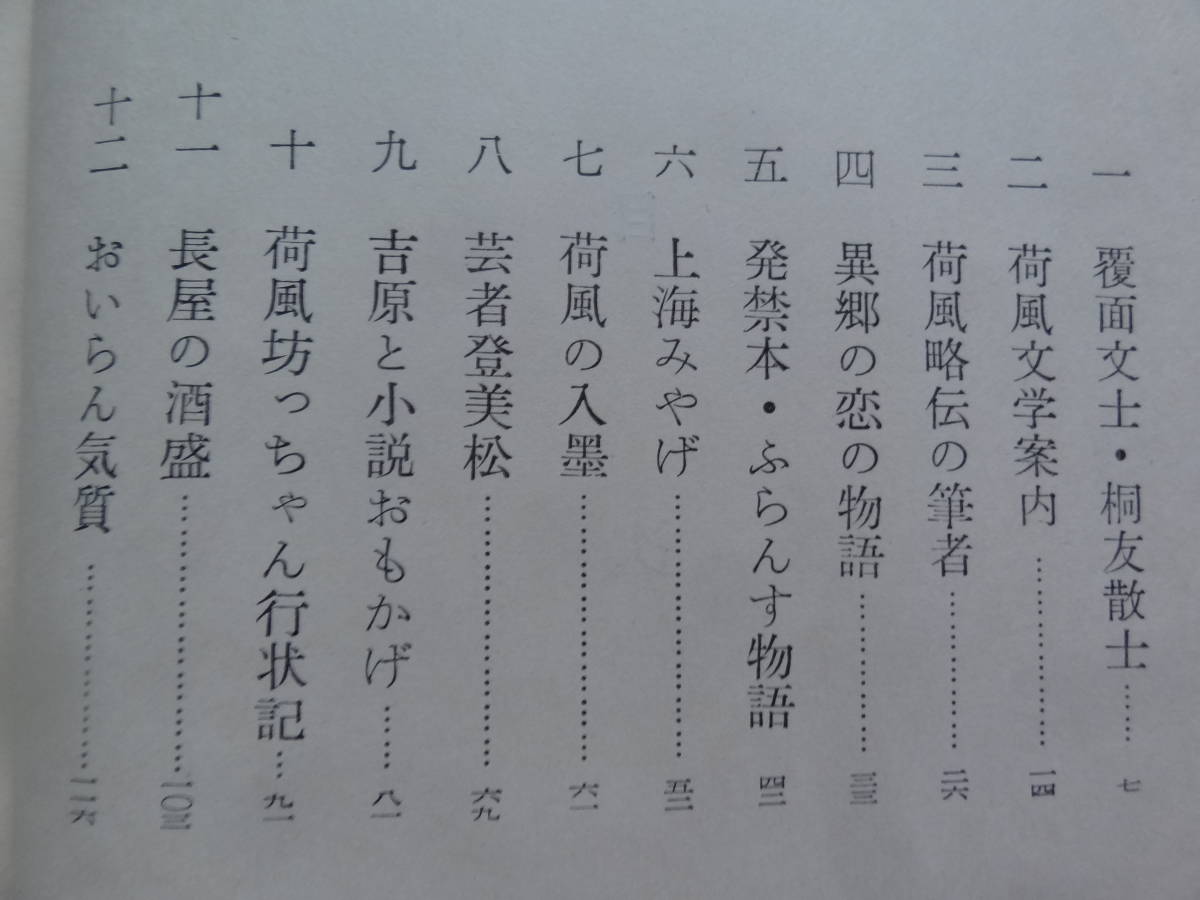 一 覆面文士・桐友散士……七
二 荷風文学案内……………一四
三 荷風略伝の筆者…………二六
四 異郷の恋の物語…………三三
五 発禁本・ふらんす物語 四二
六 上海みやげ…………………五二
七 荷風の入墨…………………六一
八 芸者登美松…………………六九
九 吉原と小説おもかげ……八一
十 荷風坊っちゃん行状記…九一
十一 長屋の酒盛…………………一〇三
十二 おいらん気質………………一一六